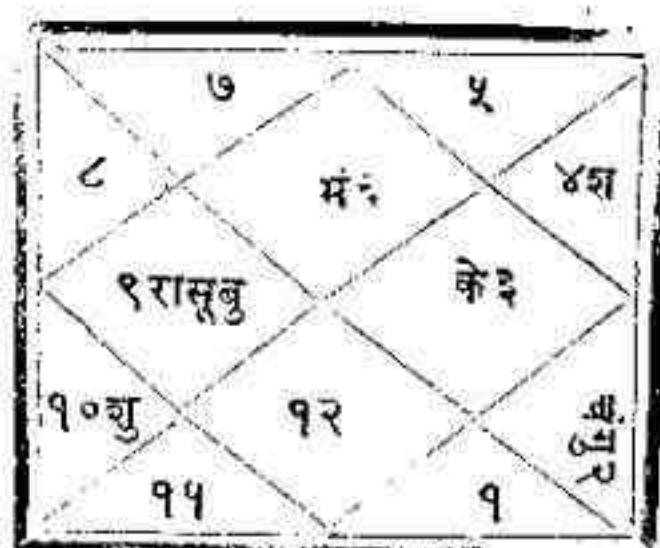 ७ ५
८ मं ६ ४श
९रासूबु के३
१०शु १२ चंगु२
१५ १